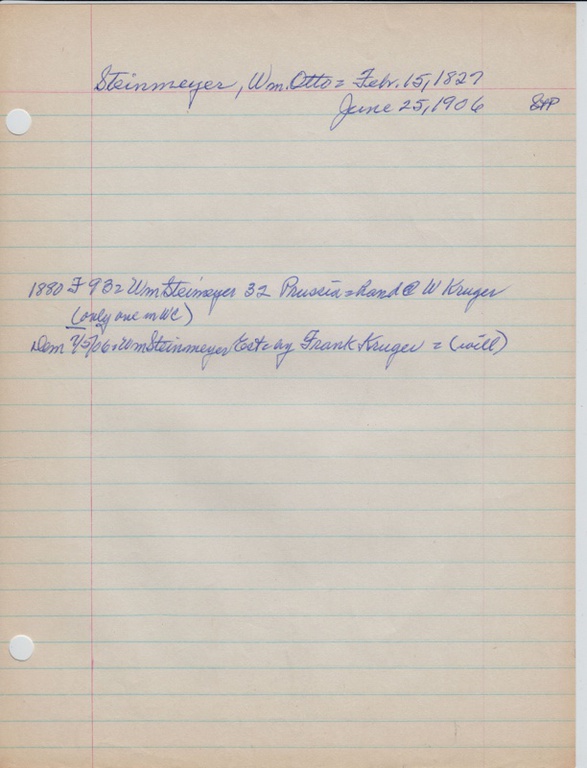 Steinmeyer, Wm. Otto = Febr. 15, 1827
June 25, 1906
1880 F 93 = Wm Steimeyer 32 Prussia = hand @ W Kruger
(only one in WC)
Dem 7/5/06 = Wm Steinmeyer Est = by Frank Kruger = (will)